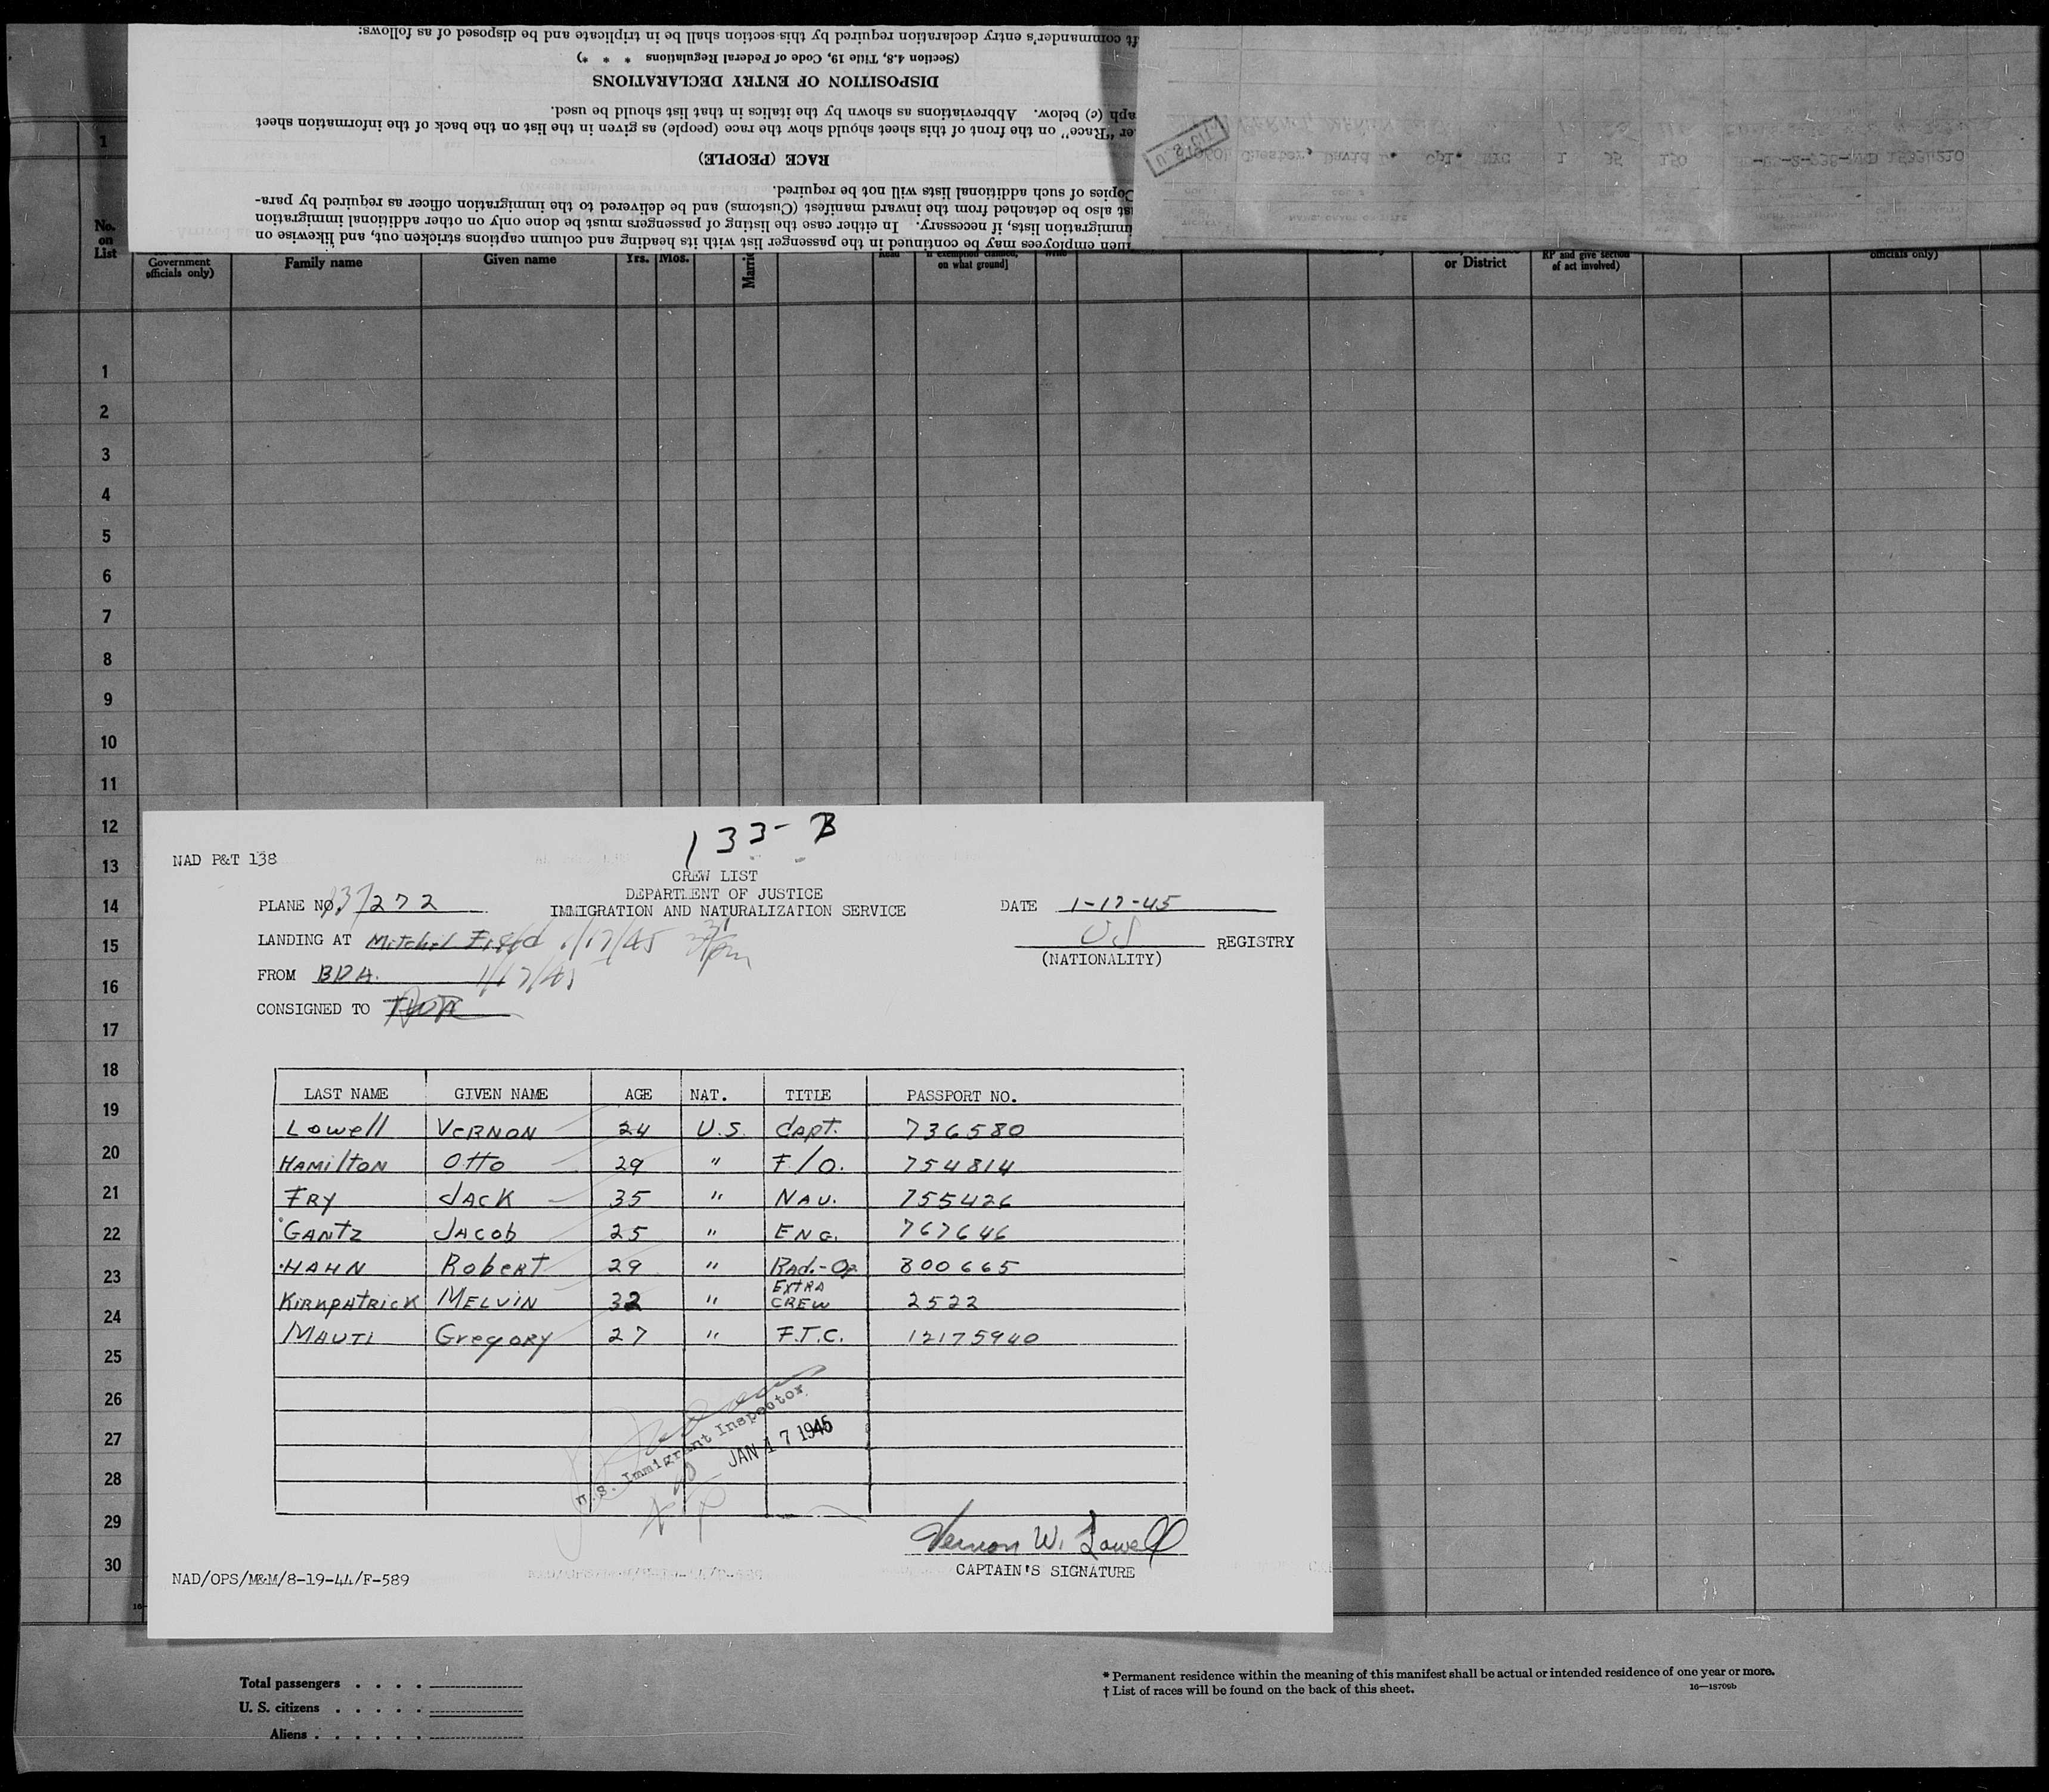 ft commander's entry declaration required by this section shall be in triplicate and be disposed of as follows:
(Section 4.8, Title 19, Code of Federal Regulations * * *)
DISPOSITION OF ENTRY DECLARATIONS
aph (c) below. Abbreviations as shown by the italics in that list should be used.
er "Race" on the front of this sheet should show the race (people) as given in the list on the back of the information sheet
RACE (PEOPLE)
Copies of such additional lists will not be required.
st also be detached from the inward manifest (Customs) and be delivered to the immigration officer as required by para-
immigration lists, if necessary. In either case the listing of passengers must be done only on other additional immigration
hen employees may be continued in the passenger list with its heading and column captions stricken out, and likewise on
Chester, David Cpl. NYC 1 35 150
1
No. on List
Government officials only)
Family name
Given name
Yrs. Mos.
Marrie
Read
if exemption claimed, on what ground]
Write
or District
RP and give section of act involved)
officials only)
1
2
3
4
5
6
7
8
9
10
11
12
13
14
15
16
17
18
19
20
21
22
23
24
25
26
27
28
29
30
133-B
NAD P&T 138
CREW LIST
DEPARTMENT OF JUSTICE
IMMIGRATION AND NATURALIZATION SERVICE
PLANE NO. 37272
DATE 1-17-45
LANDING AT Mitchel Field 1/17/45
US REGISTRY
(NATIONALITY)
FROM BDA. 1/17/45
CONSIGNED TO
LAST NAME GIVEN NAME AGE NAT. TITLE PASSPORT NO.
Lowell VERNON 24 U.S. Capt. 736580
HAMILTON Otto 29 " F/O. 754814
FRY JACK 35 " NAV. 755426
GANTZ JACOB 25 " ENG. 767646
HAHN ROBERT 29 " Rad.-Op 800665
KIRKPATRICK MELVIN 32 " EXTRA CREW 2522
MAUTI GREGORY 27 " F.T.C. 12175940
U.S. Immigrant Inspector
JAN 17 1945
Vernon W. Lowell
CAPTAIN'S SIGNATURE
NAD/OPS/M&M/8-19-44/F-589
Total passengers . . . .
U. S. citizens . . . . .
Aliens . . . . . .
* Permanent residence within the meaning of this manifest shall be actual or intended residence of one year or more.
† List of races will be found on the back of this sheet.
16—18709b